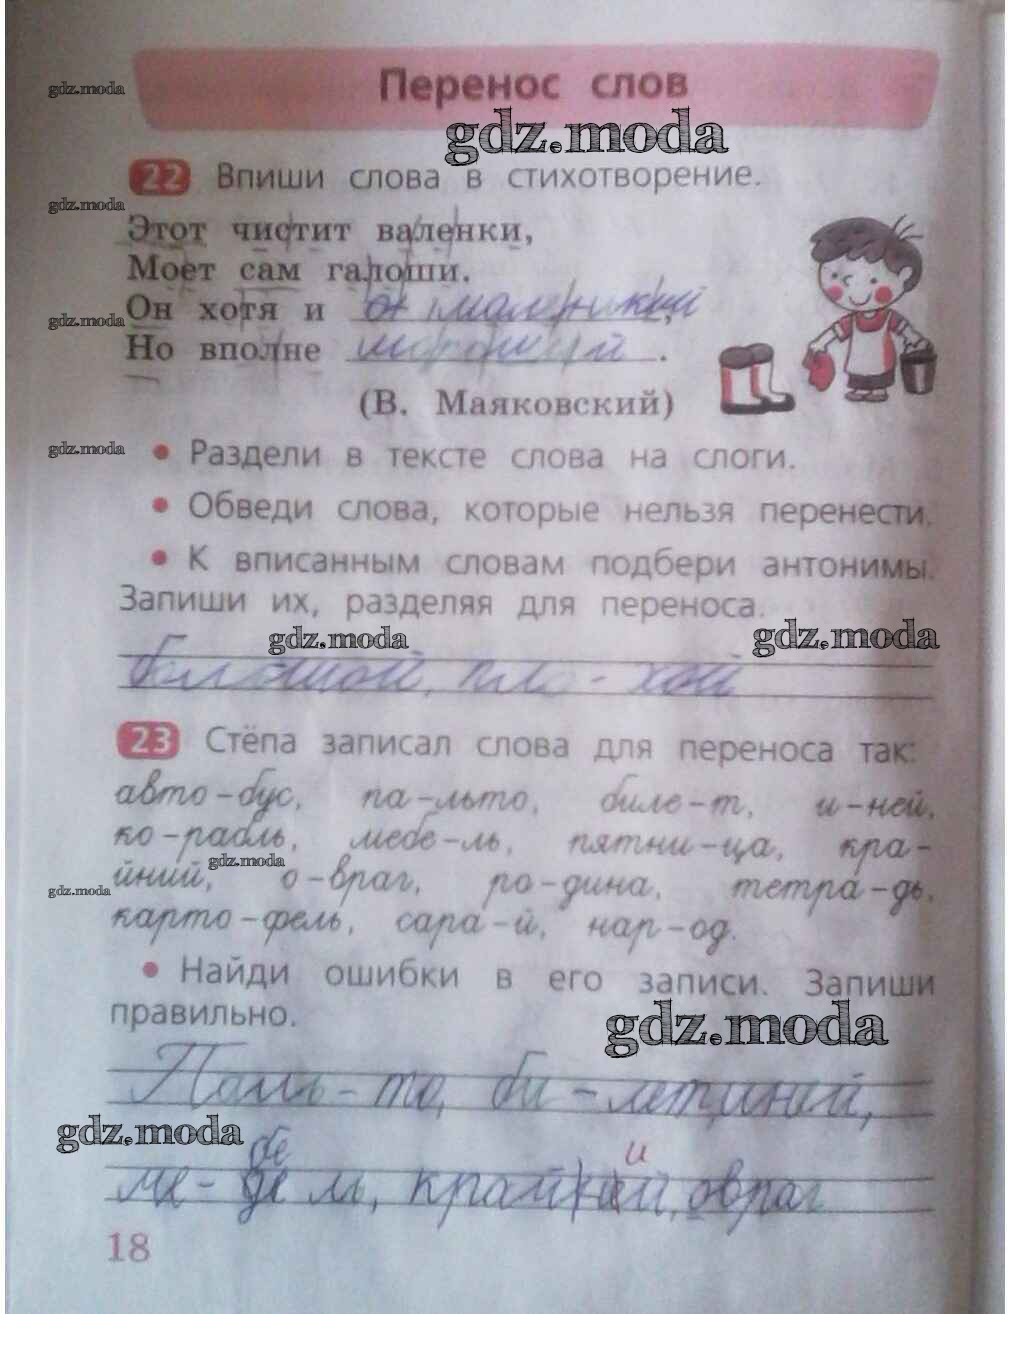 Перенос слов
gdz.moda
gdz.moda
22 Впиши слова в стихотворение.
gdz.moda
Этот чистит валенки,
Моет сам галоши.
Он хотя и маленький,
gdz.moda
Но вполне хороший.
(В. Маяковский)
gdz.moda
• Раздели в тексте слова на слоги.
• Обведи слова, которые нельзя перенести.
• К вписанным словам подбери антонимы.
Запиши их, разделяя для переноса.
gdz.moda gdz.moda
большой, пло-хой
23 Стёпа записал слова для переноса так:
авто-бус, па-льто, биле-т, и-ней,
ко-рабль, мебе-ль, пятни-ца, кра-
gdz.moda
йний, о-враг, ро-дина, тетра-дь,
gdz.moda
карто-фель, сара-й, нар-од.
• Найди ошибки в его записи. Запиши
правильно.
gdz.moda
Паль-то, би-лет, иней,
gdz.moda
бе
и
ме- ль, край ий, овраг
18